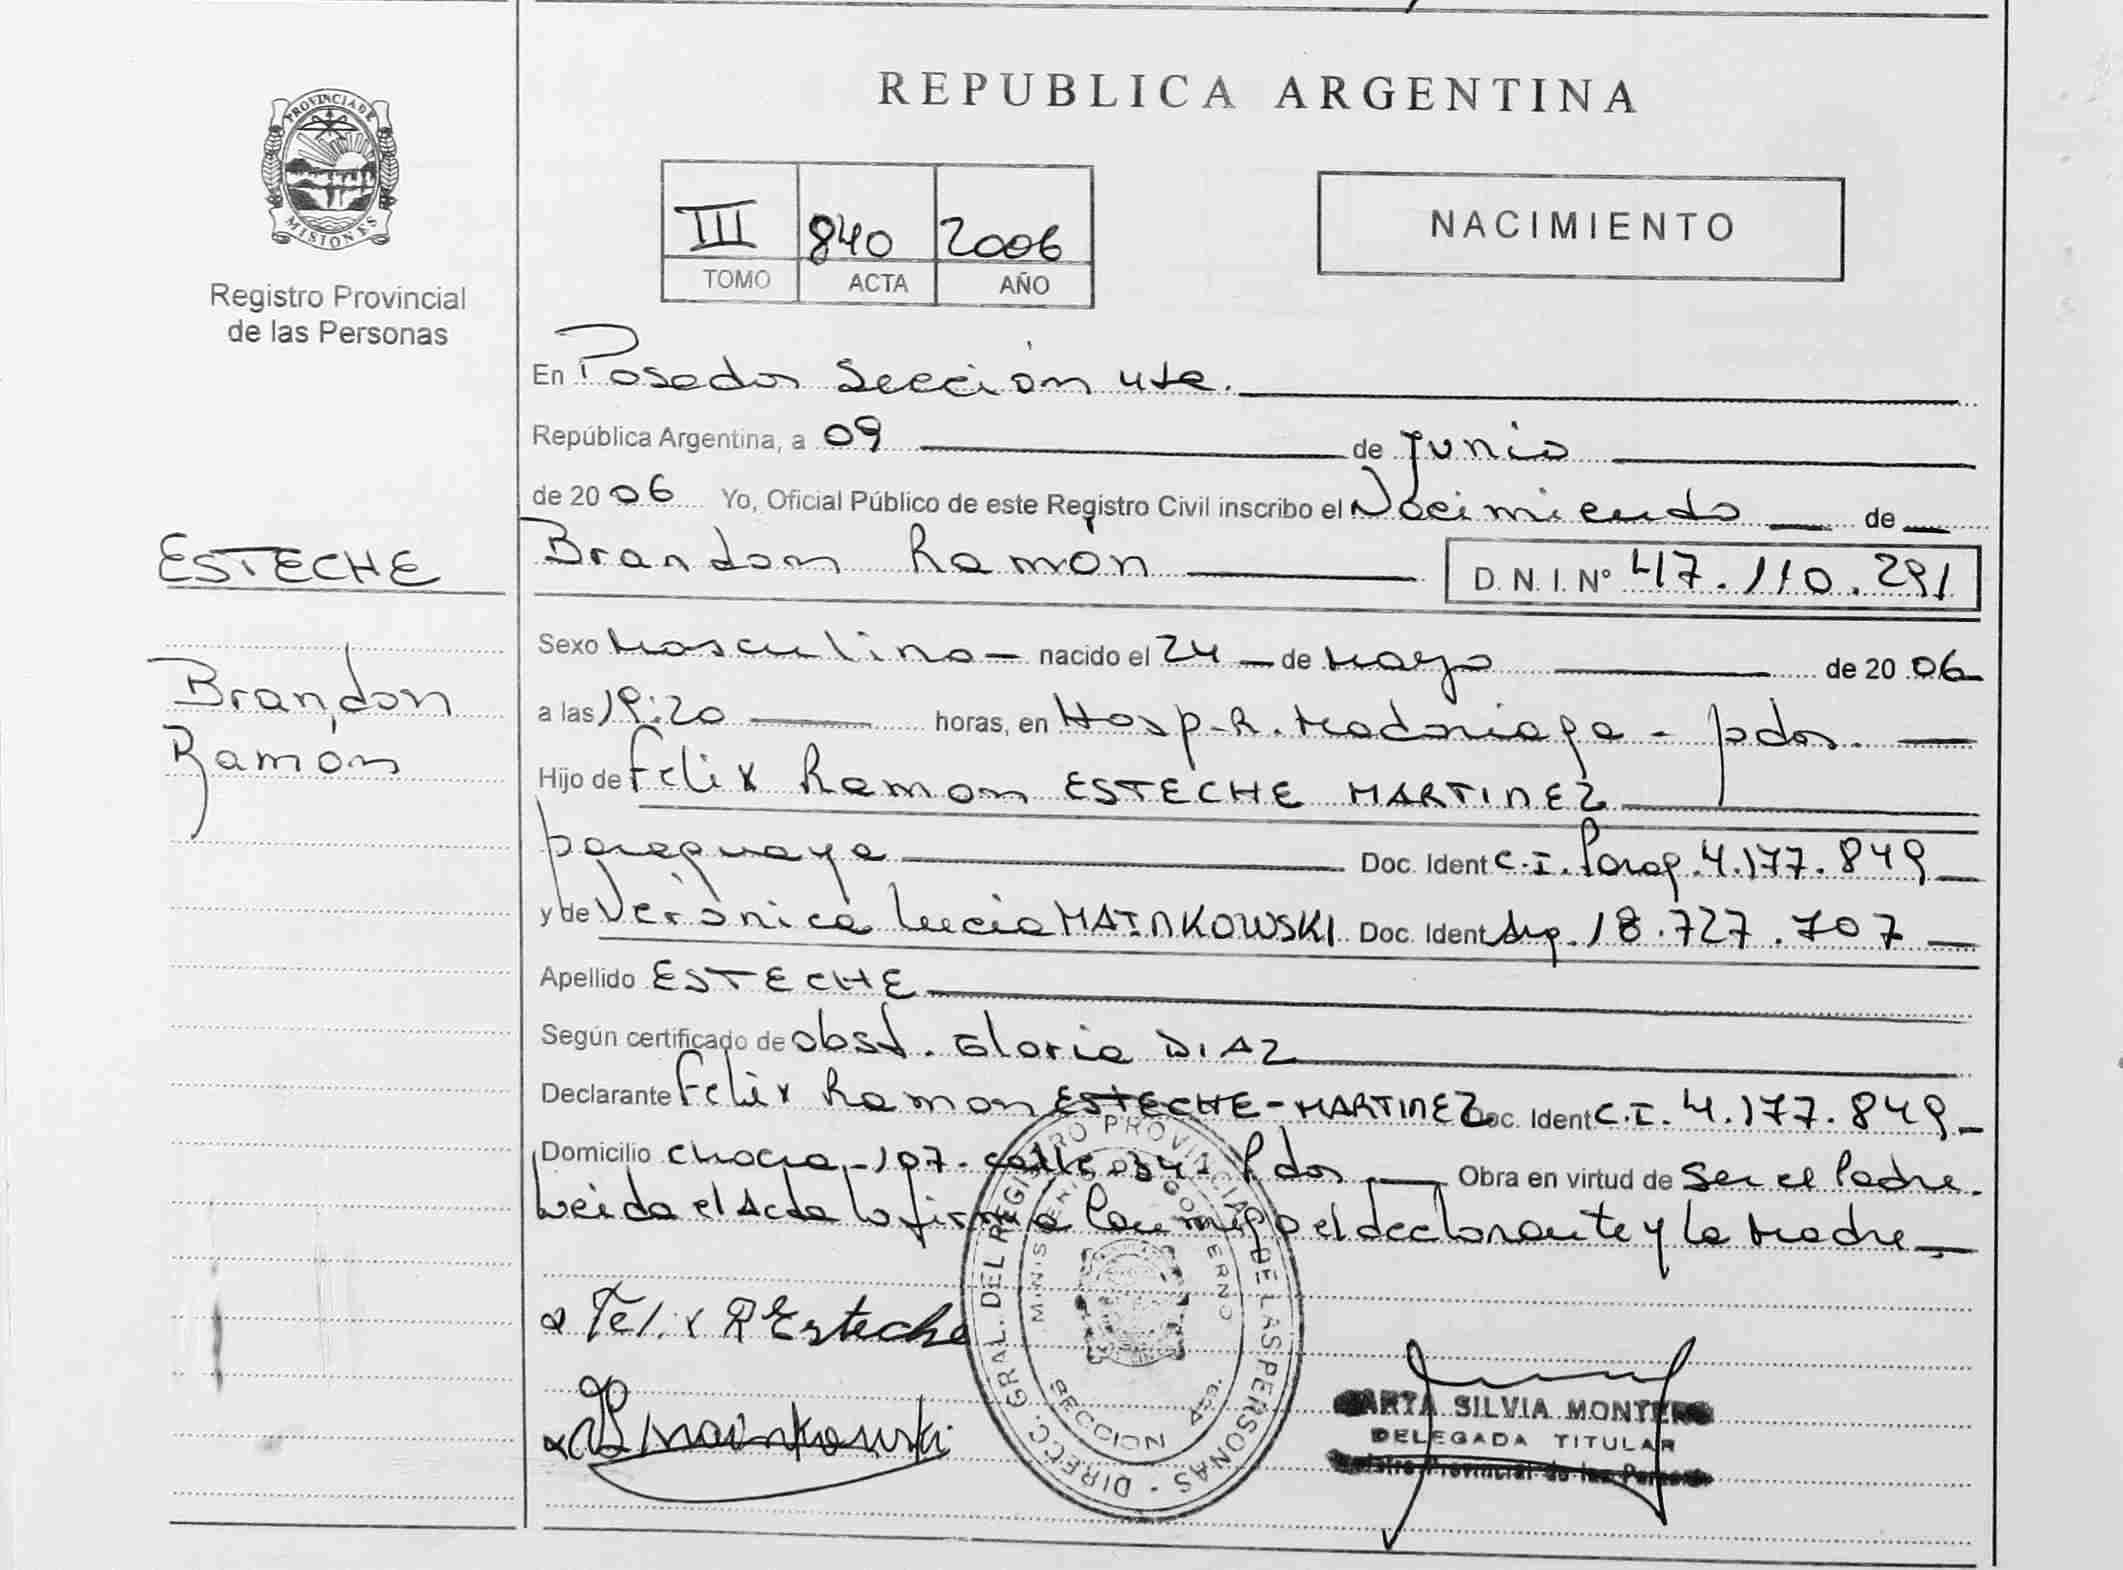 PROVINCIA DE
MISIONES
Registro Provincial
de las Personas
ESTECHE
Brandon
Ramón
REPUBLICA ARGENTINA
III 840 2006
TOMO ACTA AÑO
NACIMIENTO
En Posadas Sección 4ta.
República Argentina, a 09 de Junio
de 2006 Yo, Oficial Público de este Registro Civil inscribo el Nacimiento de
Brandon Ramón D.N.I. Nº 47.110.291
Sexo Masculino - nacido el 24 de Mayo de 2006
a las 19:20 horas, en Hosp. R. Madariaga - Pdas.
Hijo de Felix Ramon ESTECHE MARTINEZ
paraguaya Doc. Ident C.I. Parag. 4.177.849
y de Verónica Lucia MAINKOWSKI Doc. Ident Arg. 18.727.707
Apellido ESTECHE
Según certificado de Obst. Gloria DIAZ
Declarante Felix Ramon ESTECHE-MARTINEZ Doc. Ident C.I. 4.177.849
Domicilio Chacra - 107 - calle Pdas Obra en virtud de Ser el Padre.
Leida el Acta la firma Conmigo el declarante y la Madre
Felix R Esteche
Mainkowski
DIRECC. GRAL. DEL REGISTRO PROVINCIAL DE LAS PERSONAS
MINISTERIO GOBIERNO
SECCION
MARTA SILVIA MONTERO
DELEGADA TITULAR
Registro Provincial de las Personas